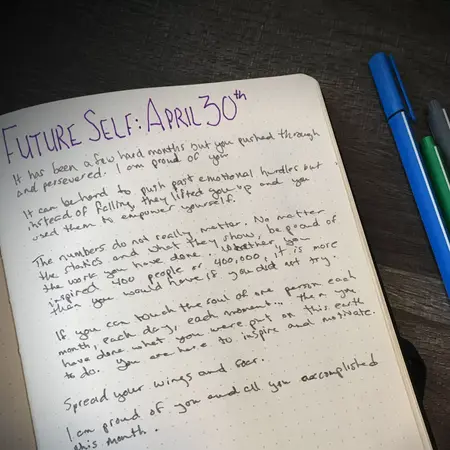 FUTURE SELF: APRIL 30th
It has been a few hard months but you pushed through
and persevered. I am proud of you.
It can be hard to push past emotional hurdles but
instead of falling, they lifted you up and you
used them to empower yourself.
The numbers do not really matter. No matter
the statics and what they show, be proud of
the work you have done. Whether you
inspired 400 people or 400,000, it is more
than you would have if you did not try.
If you can touch the soul of one person each
month, each day, each moment... then you
have done what you were put on this earth
to do. You are here to inspire and motivate.
Spread your wings and soar.
I am proud of you and all you accomplished
this month.